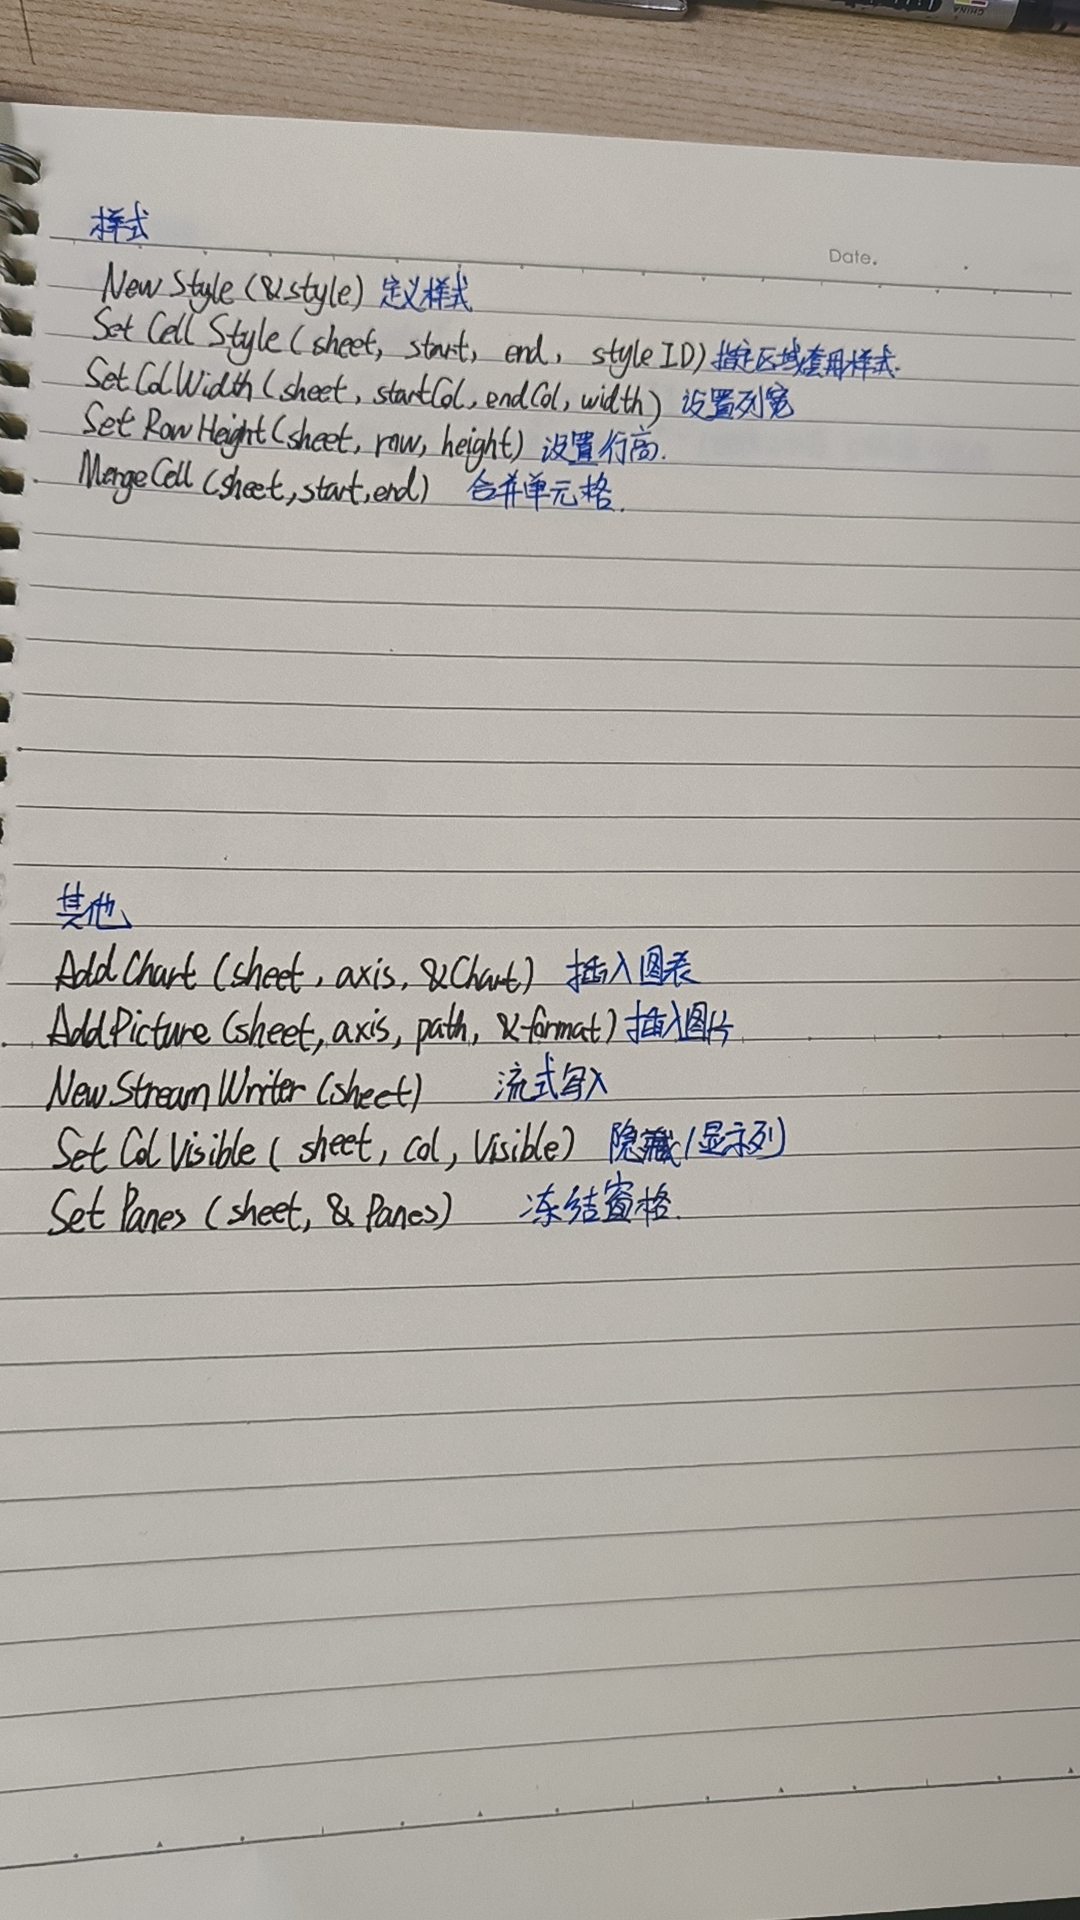 CHINA
Date.
样式
New Style (&style) 定义样式
Set Cell Style (sheet, start, end, style ID) 指定区域套用样式.
Set Col Width (sheet, startCol, endCol, width) 设置列宽
Set Row Height (sheet, row, height) 设置行高.
MergeCell (sheet, start, end) 合并单元格.
其他
Add Chart (sheet, axis, &Chart) 插入图表
AddPicture (sheet, axis, path, &format) 插入图片
New Stream Writer (sheet) 流式写入
Set Col Visible (sheet, col, Visible) 隐藏/显示列)
Set Panes (sheet, & Panes) 冻结窗格.